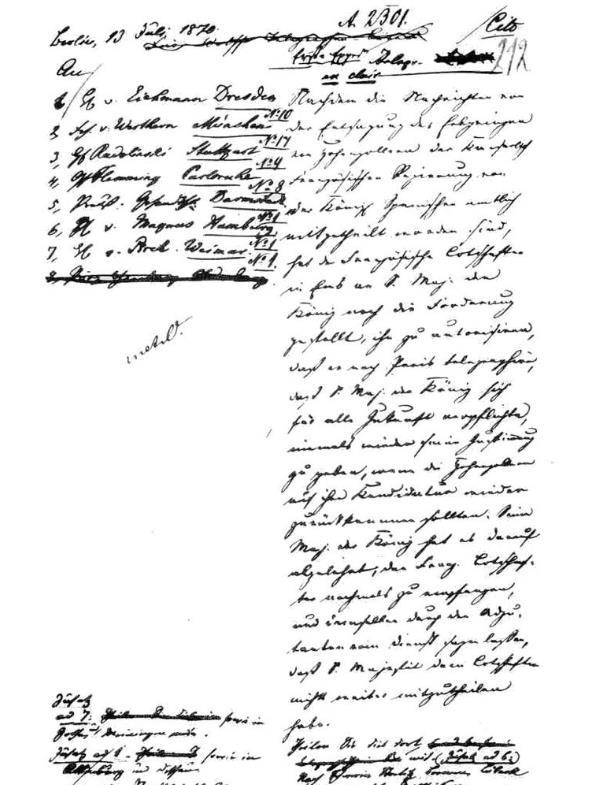 Berlin, 13 Juli 1870.
A. 2301.
Cito
212
Telegr.
en clair
An
1, v. Eichmann Dresden
N: 10
2, v. Werthern München
N: 17
3, Gf Radolinski Stuttgart
N: 9
4, Gf Flemming Carlsruhe
N: 8
5, Preuß. Darmstadt
N: 1
6, v. Magnus Hamburg
N: 1
7, v. Weimar
N: 1
Nachdem die Nachrichten von
der Entsagung des Erbprinzen
von Hohenzollern der Kaiserlich
Französischen Regierung von
der Königl. Spanischen amtlich
mitgetheilt worden sind,
hat der Französische Botschafter
in Ems an S. Maj. den
König noch die Forderung
gestellt, ihn zu autorisiren,
daß er nach Paris telegraphire,
daß S. Maj. der König sich
für alle Zukunft verpflichte,
niemals wieder seine Zustimmung
zu geben, wenn die Hohenzollern
auf ihre Kandidatur wieder
zurückkommen sollten. Seine
Maj. der König hat es darauf
abgelehnt, den Franz. Botschaf-
ter nochmals zu empfangen,
und demselben durch den Adju-
tanten vom Dienst sagen lassen,
daß S. Majestät dem Botschafter
nichts weiter mitzutheilen
habe.
Zusatz
ad 7: sowie in
Meiningen
Zusatz ad 1 sowie in
Altenburg und Dessau
Theilen Sie dies dort
mit (Zusatz ad 6: